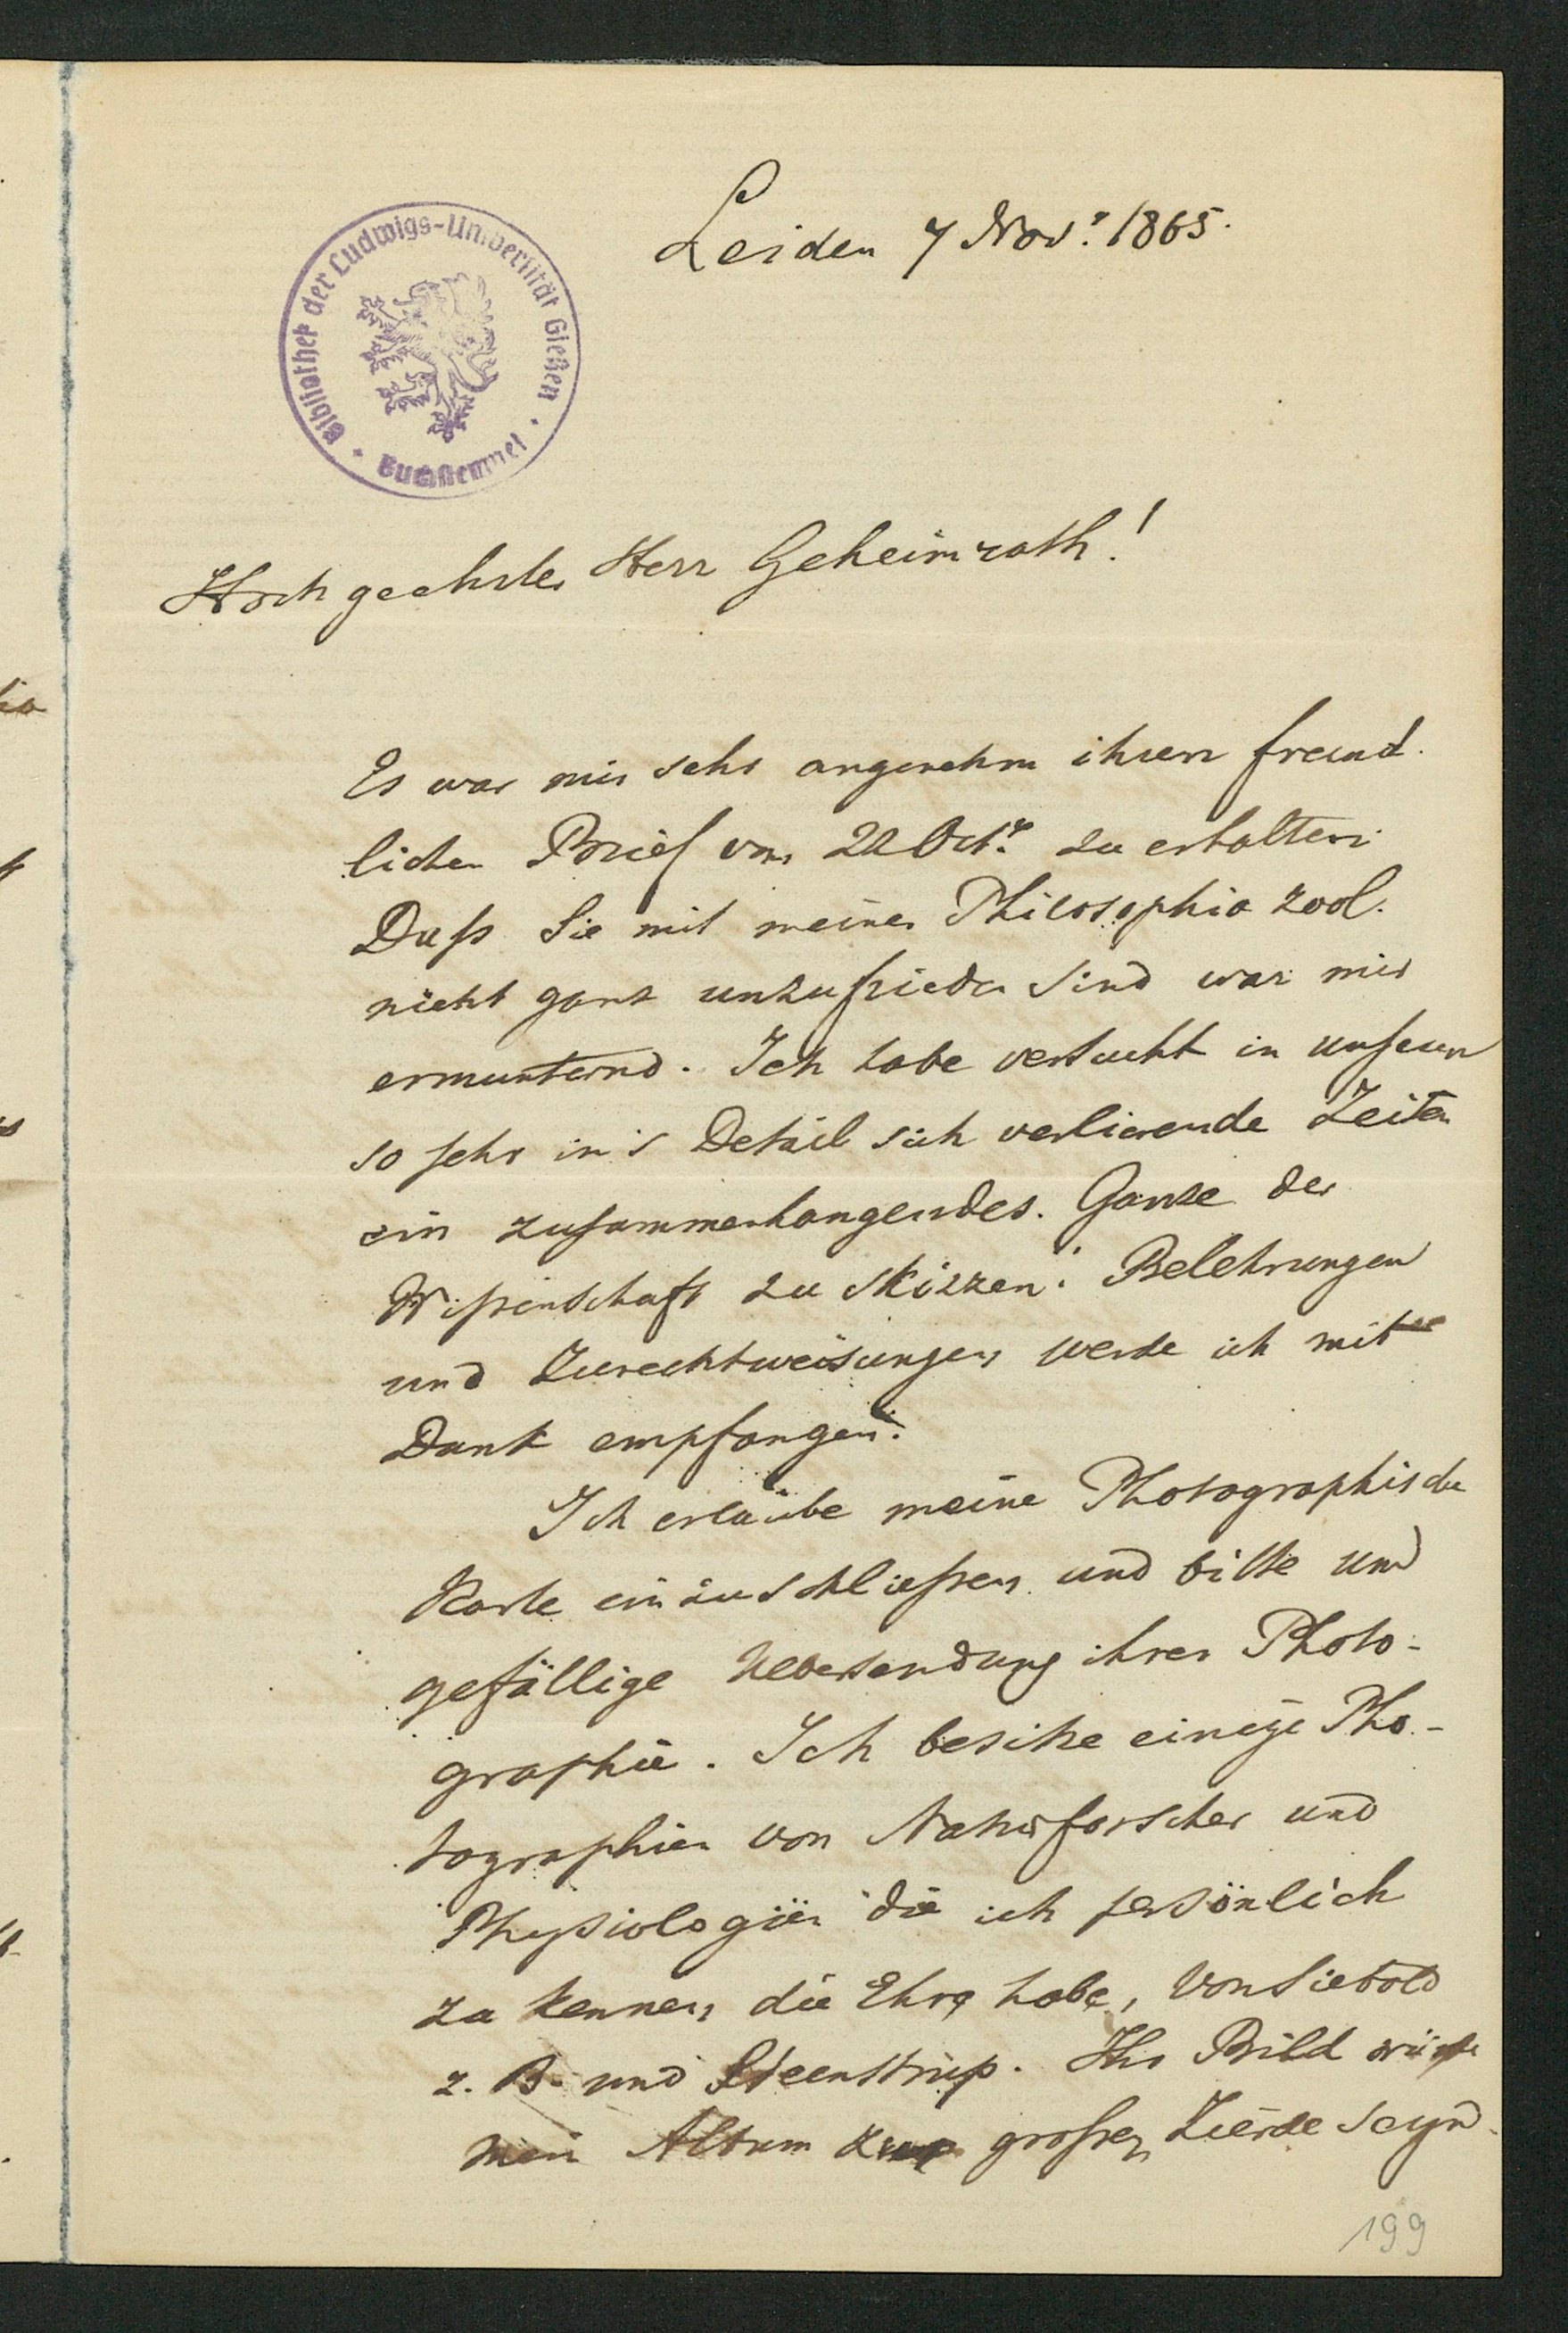 Leiden 7 Novr. 1865.
Bibliothek der Ludwigs-Universität Gießen
Buchstempel
Hochgeehrter Herr Geheimrath!
Es war mir sehr angenehm ihren freund-
lichen Brief von 22 Octr. zu erhalten.
Dass Sie mit meiner Philosophia zool.
nicht ganz unzufrieden sind war mir
ermunternd. Ich habe versucht in unseren
so sehr in's Detail sich verlierende Zeiten
ein zusammenhangendes Ganze der
Wissenschaft zu skizzen. Belehrungen
und Zurechtweisungen werde ich mit
Dank empfangen.
Ich erlaube meine Photographische
Karte einzuschliessen und bitte um
gefällige Uebersendung ihrer Photo-
graphie. Ich besitze einige Pho-
tographien von Naturforscher und
Physiologien die ich persönlich
zu kennen die Ehre habe, Von Siebold
z. B. und Steenstrup. Ihr Bild würde
mein Album zur grossen Zierde seyn.
199